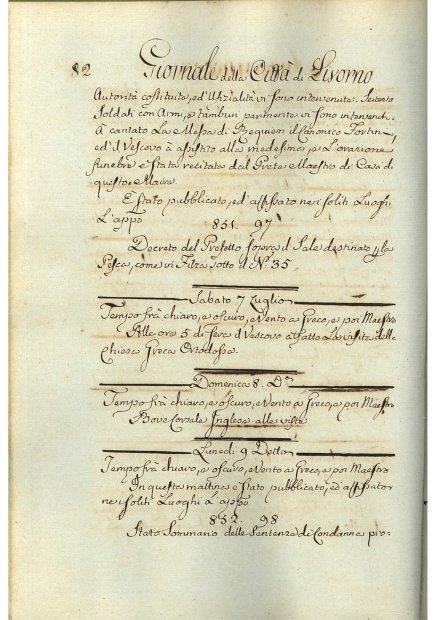 82 Giornale della Città di Livorno
Autorità costituite, ed Ufizialità vi sono intervenute. Seicento
Soldati con Armi, e tamburi parimente vi sono intervenuti.
A cantato La Messa di Requiem il Canonico
ed il Vescovo à assistito alla medesima, e L'orazione
funebre è stata recitata dal Prete Maestro di Casa di
questo Maire.
È stato pubblicato, ed affissato nei soliti Luoghi
L'appo
851. 97
Decreto del Prefetto sopra il Sale destinato p la
Pesca, come in Filza sotto il N° 35
Sabato 7 Luglio
Tempo frà chiaro, e oscuro, e Vento a Greco, e poi Maestro
Alle ore 5 di sera il Vescovo à fatto La visita della
Chiesa Greca Ortodossa.
Domenica 8. Do
Tempo frà chiaro, e oscuro, e Vento a Greco, e poi Maestro
Bove Corsale Inglese alle viste
Lunedì 9 Detto
Tempo frà chiaro, e oscuro, e Vento a Greco, e poi Maestro
In questa mattina è stato pubblicato, ed affissato
nei soliti Luoghi L'appo
852. 98
Stato Sommario delle Sentenze di Condanna pro-